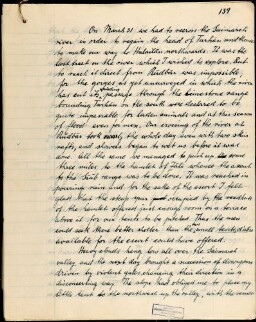 139
On March 31 we had to recross the Saimarreh
river in order to regain the head of Tarhan and thence
to make our way to Hulailan northwards. It was the
last tract on the river which I wished to explore. But
to reach it direct from Rudbar was impossible
for the gorges as yet unsurveyed in which the river
has cut its passage through the limestone range
bounding Tarhan on the south were declared to be
quite impassable for laden animals and at this season
of flood even for men. Our crossing of the river at
Rudbar took nearly the whole day even with two skin
rafts, and showers began to wet us before it was
done. All the same we managed to push on some
three miles to the hamlet of where the ascent
to the range was to be done. It was reached in
pouring rain and for the sake of the escort I felt
glad that the steep spur occupied by the
of the hamlet offered just enough room on a terrace
above it for our tents to be pitched. Thus the men
could seek there better shelter than the small tents
available for the escort could have offered.
Heavy clouds hung low all over the Saimarreh
valley, and the next day brought a succession of downpours
driven by violent gales, changing their direction in a
disconcerting way. The slope had obliged me to place my
little tent to the northwest up the valley, with the